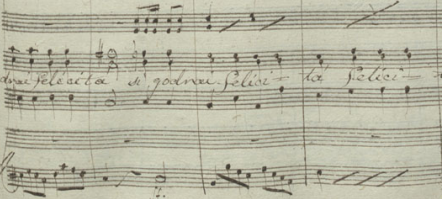 drai felicita si godrai felici = tá felici =